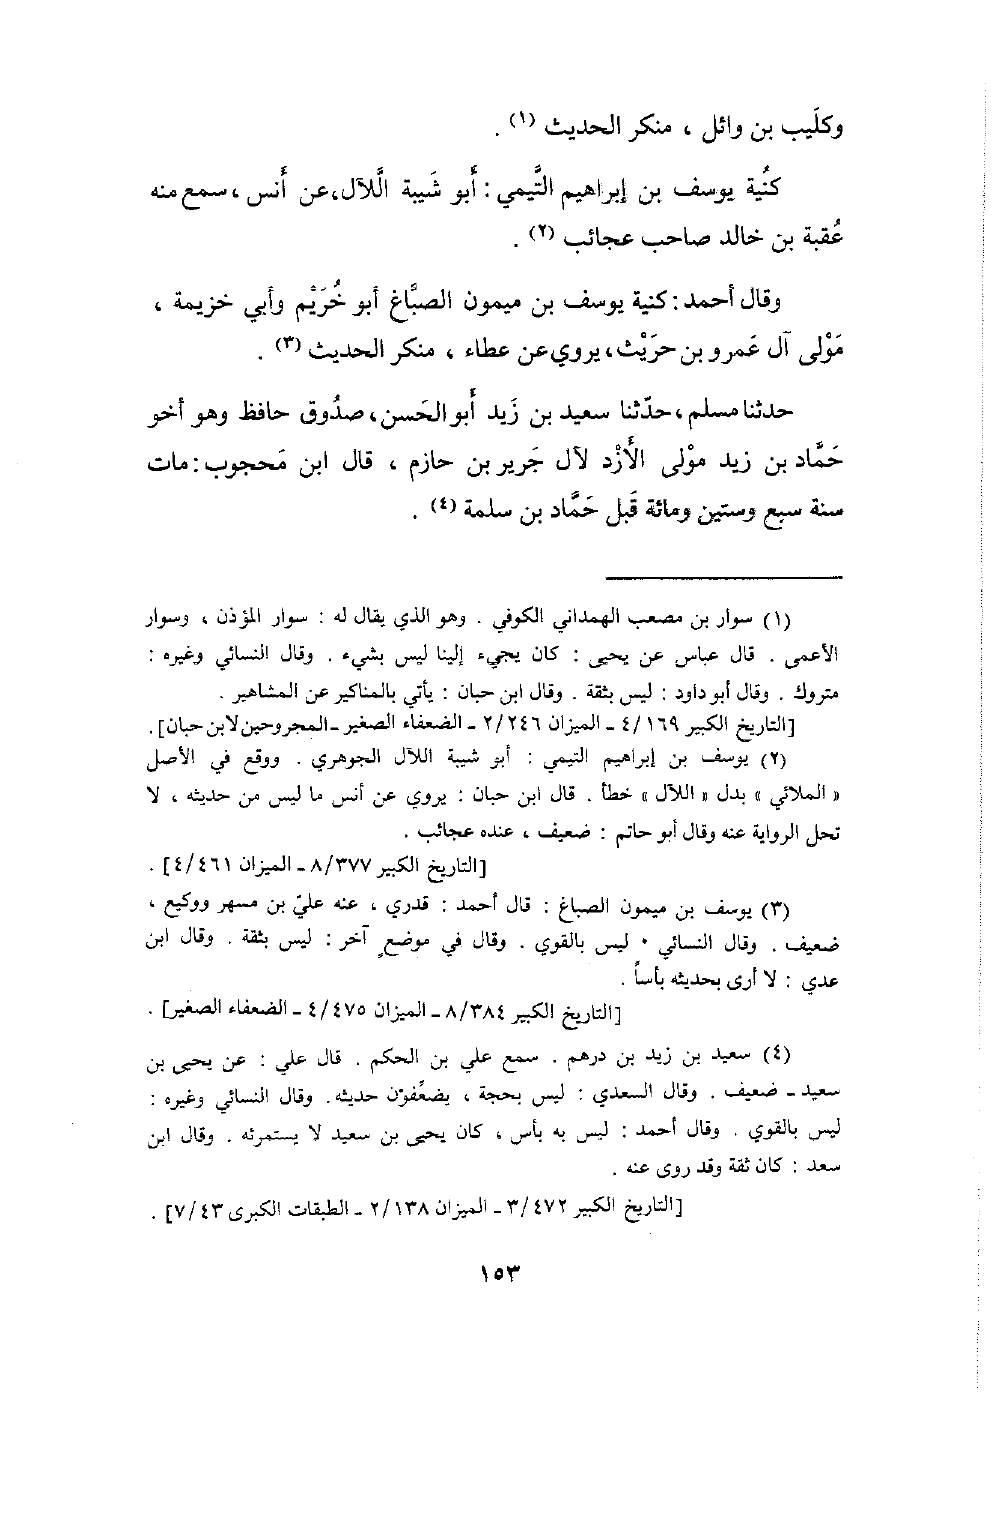 وكلَيب بن وائل ، منكر الحديث (١) .
كنُية يوسف بن إبراهيم التَّيمي : أَبو شَيبة الَّلآل، عن أَنس ، سمع منه
عُقبة بن خالد صاحب عجائب (٢) .
وقال أحمد : كنية يوسف بن ميمون الصبَّاغ أبو خُرَيْم وأبي خزيمة ،
مَوْلى آل عَمرو بن حرَيْث، يروي عن عطاء ، منكر الحديث (٣) .
حدثنا مسلم ، حدّثنا سعيد بن زَيد أَبو الحَسن، صدُوق حافظ وهو أخو
حَمَّاد بن زيد موْلى الأَزْد لآل جَرير بن حازم ، قال ابن مَحجوب : مات
سنة سبع وستين ومائة قَبل حَمَّاد بن سلمة (٤) .
(١) سوار بن مصعب الهمداني الكوفي . وهو الذي يقال له : سوار المؤذن ، وسوار
الأعمى . قال عباس عن يحيى : كان يجيء إلينا ليس بشيء . وقال النسائي وغيره :
متروك . وقال أبو داود : ليس بثقة . وقال ابن حبان : يأتي بالمناكير عن المشاهير .
[التاريخ الكبير ٤/١٦٩ ـ الميزان ٢/٢٤٦ ـ الضعفاء الصغير ـ المجروحين لابن حبان] .
(٢) يوسف بن إبراهيم التيمي : أبو شيبة اللآل الجوهري . ووقع في الأصل
« الملائي » بدل « اللآل » خطأ . قال ابن حبان : يروي عن أنس ما ليس من حديثه ، لا
تحل الرواية عنه وقال أبو حاتم : ضعيف ، عنده عجائب .
[التاريخ الكبير ٨/٣٧٧ ـ الميزان ٤/٤٦١] .
(٣) يوسف بن ميمون الصباغ : قال أحمد : قدري ، عنه عليّ بن مسهر ووكيع ،
ضعيف . وقال النسائي · ليس بالقوي . وقال في موضعٍ آخر : ليس بثقة . وقال ابن
عدي : لا أرى بحديثه بأساً .
[التاريخ الكبير ٨/٣٨٤ ـ الميزان ٤/٤٧٥ ـ الضعفاء الصغير] .
(٤) سعيد بن زيد بن درهم . سمع علي بن الحكم . قال علي : عن يحيى بن
سعيد ـ ضعيف . وقال السعدي : ليس بحجة ، يضعِّفون حديثه . وقال النسائي وغيره :
ليس بالقوي . وقال أحمد : ليس به بأس ، كان يحيى بن سعيد لا يستمرئه . وقال ابن
سعد : كان ثقة وقد روى عنه .
[التاريخ الكبير ٣/٤٧٢ ـ الميزان ٢/١٣٨ ـ الطبقات الكبرى ٧/٤٣] .
١٥٣